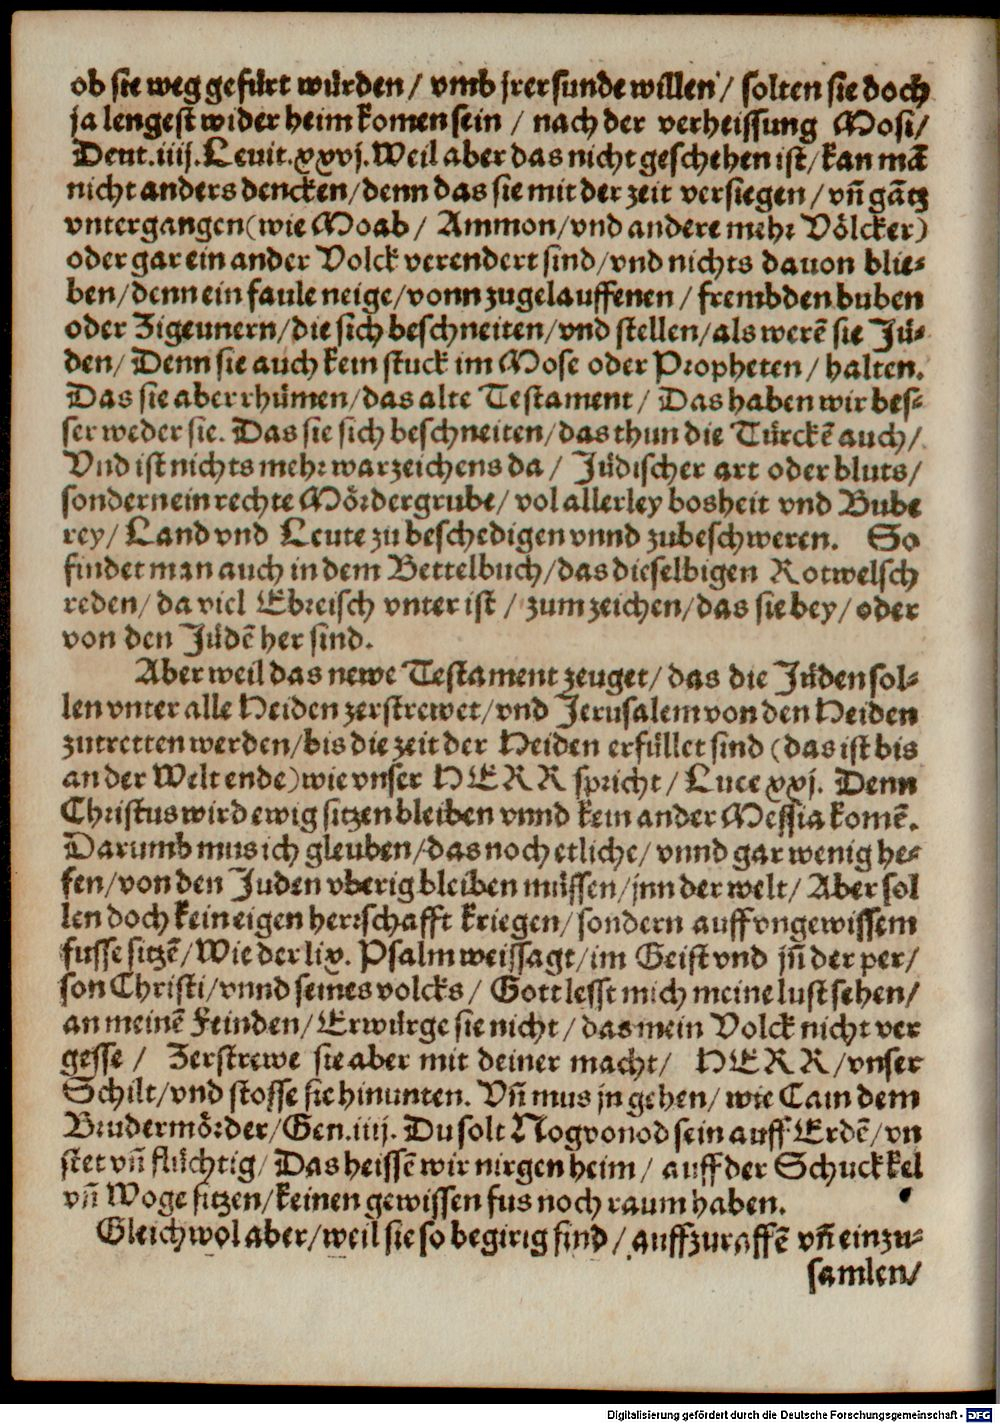 ob sie weg gefürt würden / vmb jrer sunde willen / solten sie doch
ja lengest wider heim komen sein / nach der verheissung Mosi/
Deut.iiij.Leuit.xxvj.Weil aber das nicht geschehen ist/kan mā
nicht anders dencken/denn das sie mit der zeit versiegen/vn̄ gātz
vntergangen(wie Moab/ Ammon/vnd andere mehr Völcker)
oder gar ein ander Volck verendert sind/vnd nichts dauon blie⸗
ben/denn ein faule neige/vonn zugelauffenen/frembden buben
oder Zigeunern/die sich beschneiten/vnd stellen/als werē sie Jü⸗
den/ Denn sie auch kein stuck im Mose oder Propheten/halten.
Das sie aber rhümen/das alte Testament/ Das haben wir bes⸗
ser weder sie. Das sie sich beschneiten/das thun die Türckē auch/
Vnd ist nichts mehr warzeichens da/ Jüdischer art oder bluts/
sondern ein rechte Mördergrube/vol allerley bosheit vnd Bube
rey/ Land vnd Leute zu beschedigen vnnd zubeschweren. So
findet man auch in dem Bettelbuch/das dieselbigen Rotwelsch
reden/da viel Ebreisch vnter ist / zum zeichen/das sie bey/oder
von den Jüdē her sind.
Aber weil das newe Testament zeuget/das die Jüden sol⸗
len vnter alle Heiden zerstrewet/vnd Jerusalem von den Heiden
zutretten werden/bis die zeit der Heiden erfüllet sind (das ist bis
an der Welt ende)wie vnser HERR spricht/Luce xxj. Denn
Christus wird ewig sitzen bleiben vnnd kein ander Messia komē.
Darumb mus ich gleuben/das noch etliche/vnnd gar wenig he⸗
fen/von den Juden vberig bleiben müssen/jnn der welt/Aber sol
len doch kein eigen herrschafft kriegen/sondern auff vngewissem
fusse sitzē/Wie der lix. Psalm weissagt/im Geist vnd jn̄ der per/
son Christi/vnnd seines volcks/ Gott lesst mich meine lust sehen/
an meinē Feinden/Erwürge sie nicht/das mein Volck nicht ver
gesse / Zerstrewe sie aber mit deiner macht/ HERR/vnser
Schilt/vnd stosse sie hinunten. Vn̄ mus jn gehen/wie Cain dem
Brudermörder/Gen.iiij. Du solt Nogvonod sein auff Erdē/vn
stet vn̄ flüchtig/Das heissē wir nirgen heim/ auff der Schuckkel
vn̄ Woge sitzen/keinen gewissen fus noch raum haben.
Gleichwol aber/weil sie so begirig sind/auffzuraffē vn̄ einzu⸗
samlen/
Digitalisierung gefördert durch die Deutsche Forschungsgemeinschaft - DFG